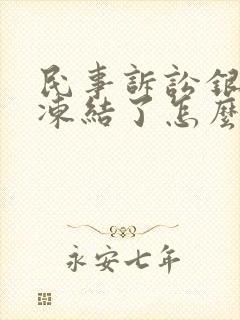 民事訴訟銀
凍結了怎麼
永安七年